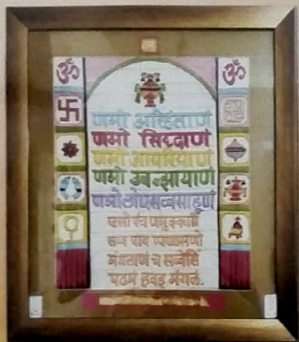 ॐ ॐ
णमो अरिहंताणं
णमो सिद्धाणं
णमो आयरियाणं
णमो उवज्झायाणं
णमो लोए सव्व साहूणं
एसो पंच णमुक्कारो
सव्व पाव प्पणासणो
मंगलाणं च सव्वेसिं
पढमं हवइ मंगलं